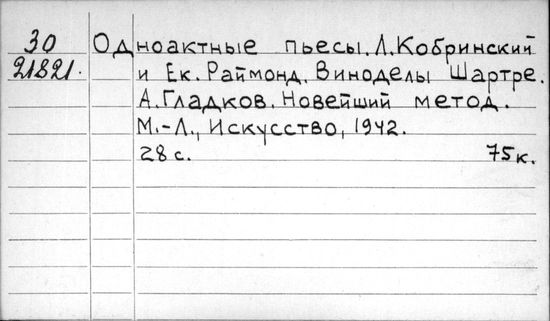 30 Одноактные пьесы. Л. Кобринский
21821. и Ек. Раймонд. Виноделы Шартре.
А. Гладков. Новейший метод.
М.-Л., Искусство, 1942.
28 с. 75 к.